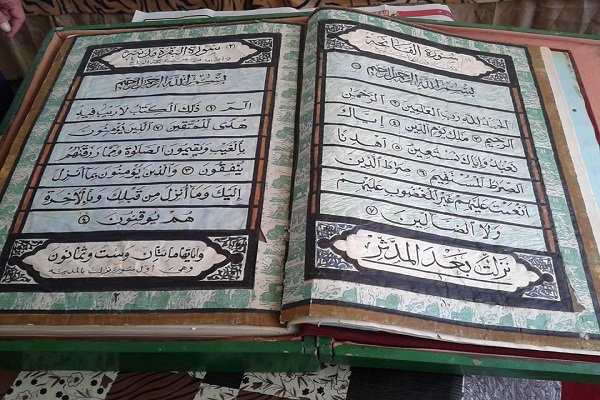 سورة الفاتحة
بسم الله الرحمن الرحيم
الحمد لله رب العلمين ٢ الرحمن
الرحيم ٣ ملك يوم الدين ٤ إياك
نعبد وإياك نستعين ٥ اهدنا
الصرط المستقيم ٦ صرط الذين
أنعمت عليهم غير المغضوب عليهم
ولا الضالين ٧
نزلت بعد المدثر
سورة البقرة مدنية
بسم الله الرحمن الرحيم
الم ١ ذلك الكتب لا ريب فيه
هدى للمتقين ٢ الذين يؤمنون
بالغيب ويقيمون الصلوة ومما رزقنهم
ينفقون ٣ والذين يؤمنون بما أنزل
إليك وما أنزل من قبلك وبالآخرة
هم يوقنون ٤
وآياتها مائتان وست وثمانون
وهي أول سورة نزلت بالمدينة
٢